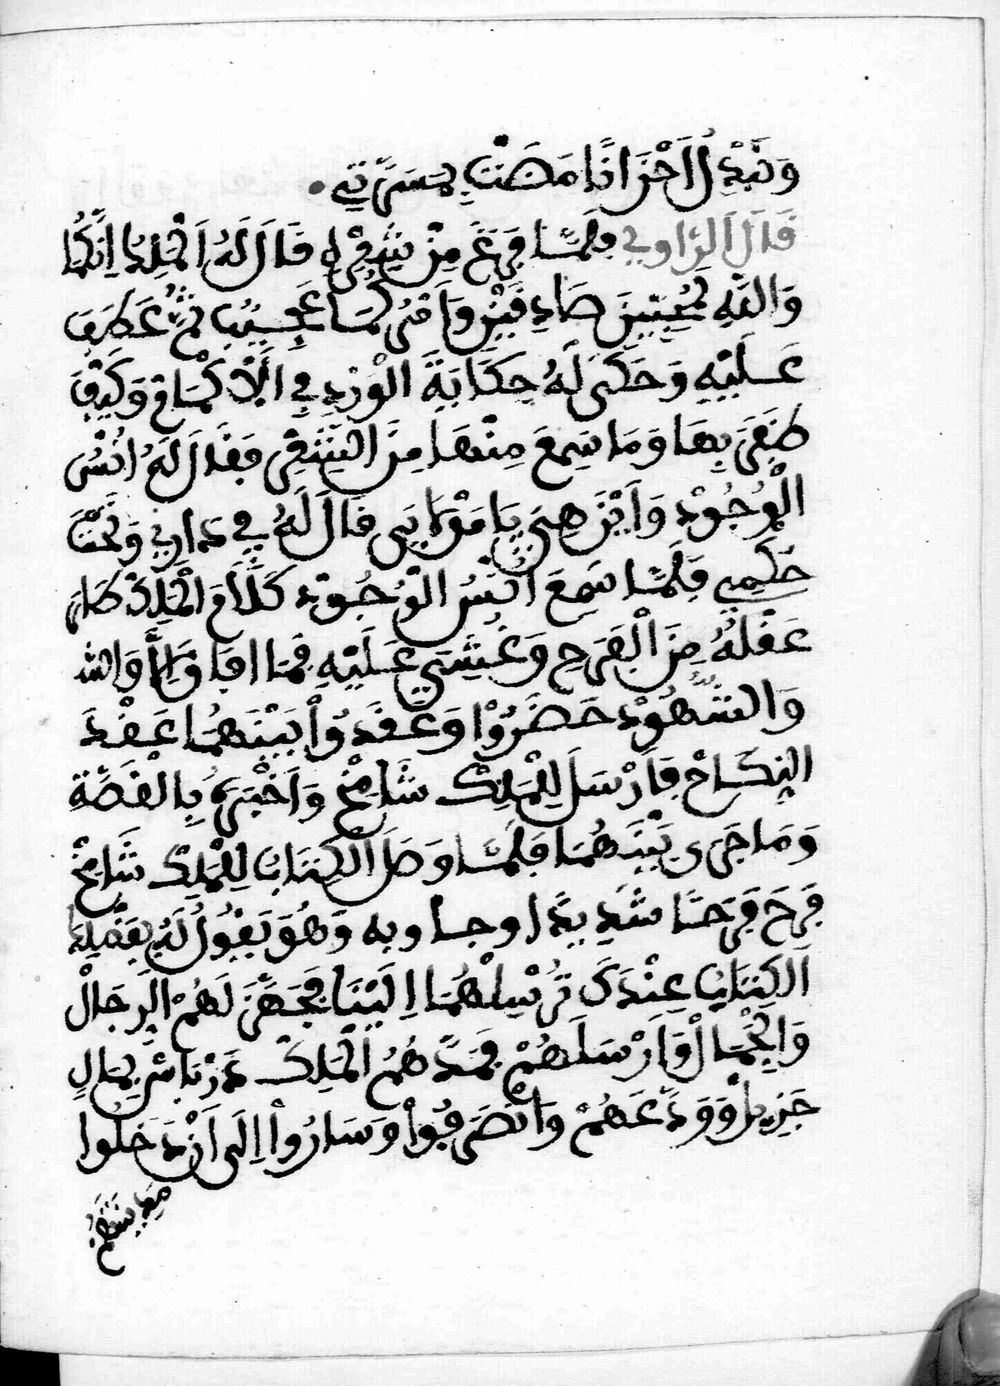 وَنُبْدِلُ اَحْزَانًا مَضَتْ بِمَسَرَّتِي
قَالَ الرَّاوِي فَلَمَّا فَرَغَ مِنْ شِعْرِهِ قَالَ لَهُ اَلْمَلِكُ اِنَّكُمَا
وَاللَّهِ لَمُحِبَّيْنِ صَادِقَيْنِ وَاَمْرُكُمَا عَجِيبٌ ثُمَّ عَطَفَ
عَلَيْهِ وَحَكَى لَهُ حِكَايَةَ الْوَرْدِ فِي الْاَكْمَامْ وَكَيْفَ
ظَفَرَ بِهَا وَمَا سَمِعَ مِنْهَا مِنَ الشِّعْرِ فَقَالَ لَهُ اُنْسُ
الْوُجُودْ وَاَيْنَ هِيَ يَا مَوْلَايَى قَالَ لَهُ فِي دَارِي وَتَحْتَ
حُكْمِي فَلَمَّا سَمِعَ اُنْسُ الْوُجُودْ كَلَامَ الْمَلِكْ طَارَ
عَقْلُهُ مِنَ الْفَرَحِ وَغُشِيَ عَلَيْهِ فَمَا افَاقَ اِلَّا وَالله
وَالشُّهُودْ حَضَرُوْا وَعَقَدُوْا بَيْنَهُمَا عَقْدَ
النِكَاحْ فَاَرْسَلَ لِلْمَلِكْ شَامِخْ وَاَخْبَرَهُ بِالْقَصَّةِ
وَمَا جَرَى بَيْنَهُمَا فَلَمَّا وَصَلَ الْكِتَابُ لِلْمَلِكْ شَامِخْ
فَرَحَ فَرَحًا شَدِيدًا وجاوبه وَهُوَ يَقُولُ لَهُ
اَلْكِتَابُ عِنْدَكَ تُرْسِلْهُمَا اِلَيْنَا فَجَهَّزَ لَهُمْ الرِجَالْ
وَالْجِمَالْ وَاَرْسَلَهُمْ فَمَدَّهُمُ الْمَلِكْ بِمَالٍ
جَزِيلْ وَوَدَّعَهُمْ وَانْصَرَفُوا وَسَارُوْا اِلَى اَنْ دَخَلُوا